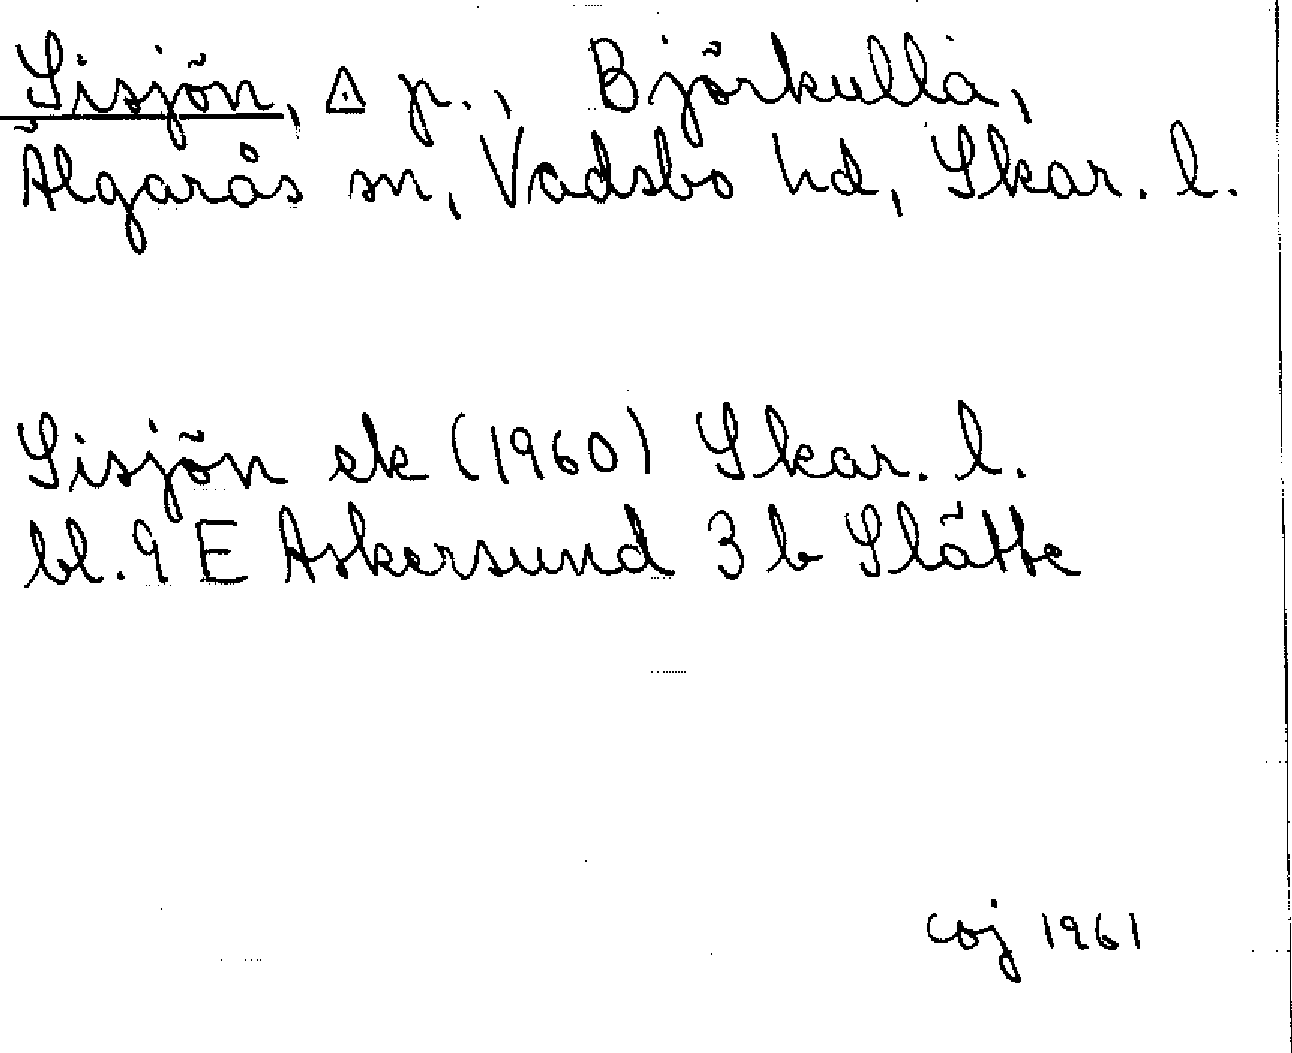 Sisjön, △ p., Björkulla,
Älgarås sn, Vadsbo hd, Skar. l.
Sisjön ek (1960) Skar. l.
bl. 9 E Askersund 3 b Slätte
coj 1961